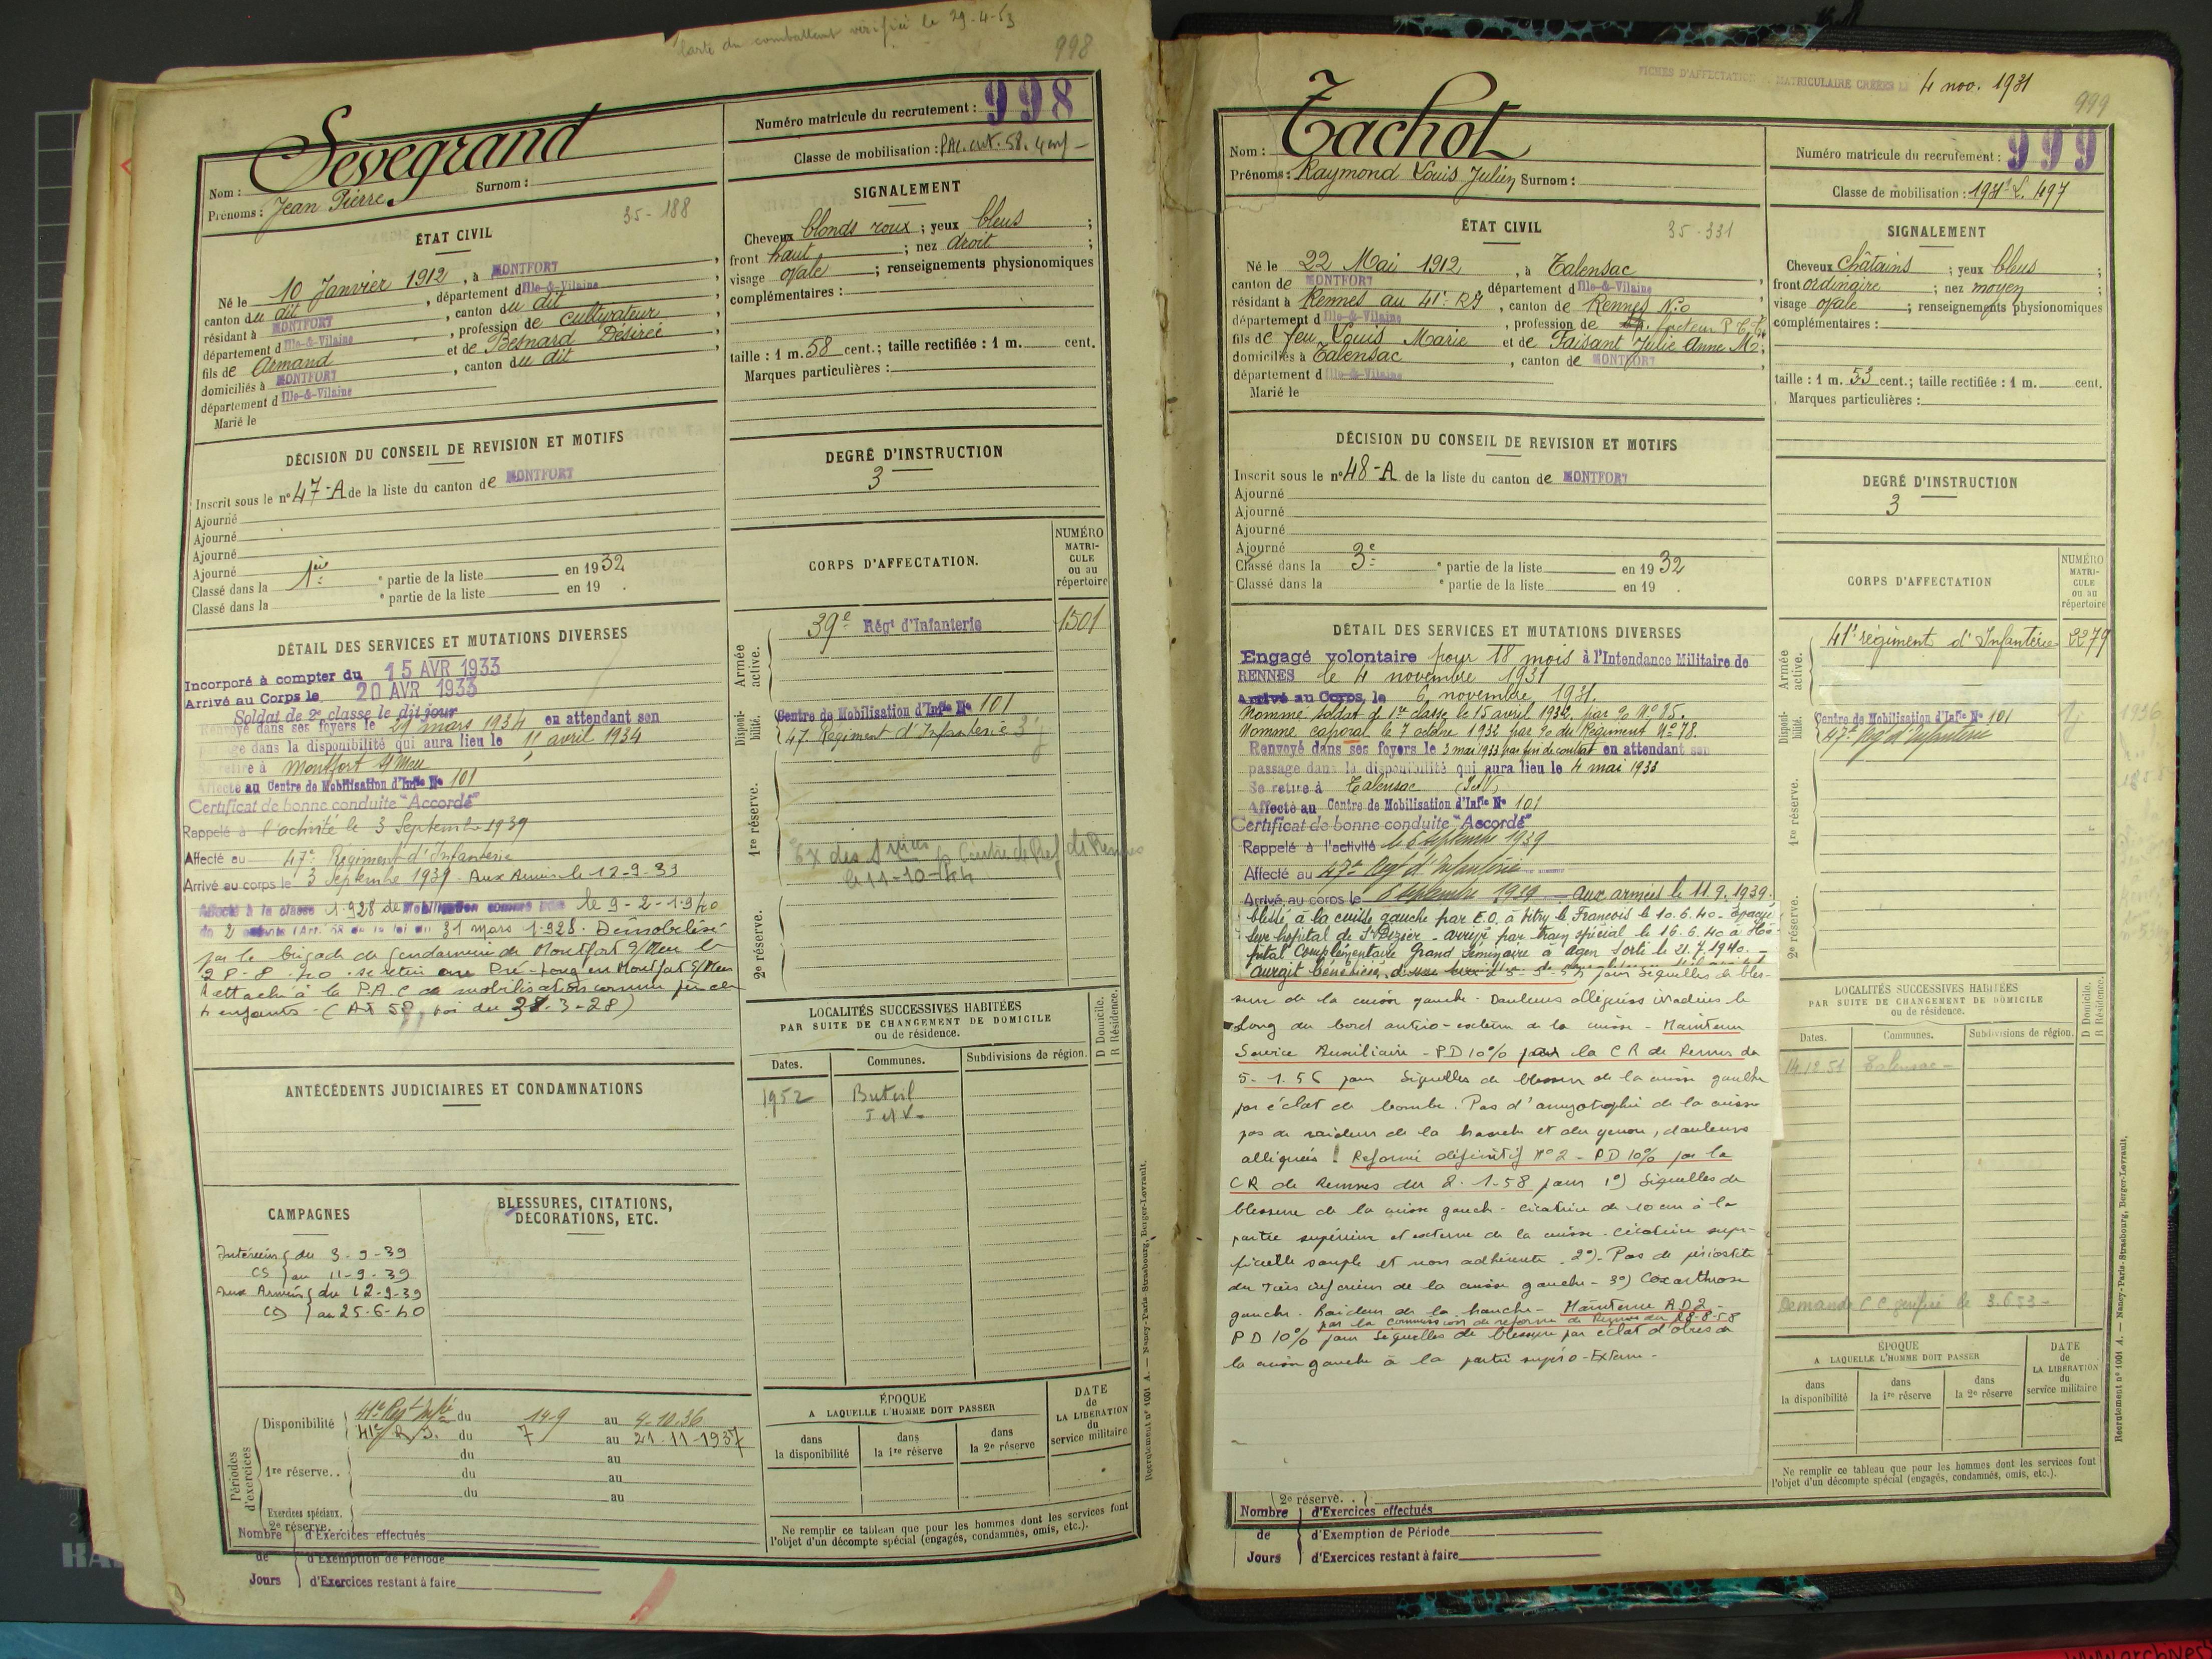 Carte du combattant vérifiée le 29-4-53
998
Sevegrand
Nom :
Prénoms : Jean Pierre Surnom :
Numéro matricule du recrutement : 998
Classe de mobilisation :
35-188
ÉTAT CIVIL
Né le 10 Janvier 1912, à MONTFORT
canton du dit, département d'Ille-&-Vilaine
résidant à MONTFORT, canton du dit
département d Ille-&-Vilaine, profession de cultivateur
fils de Armand et de Besnard Désirée
domiciliés à MONTFORT, canton du dit
département d Ille-&-Vilaine
Marié le
SIGNALEMENT
Cheveux blonds roux ; yeux bleus ;
front haut ; nez droit ;
visage ovale ; renseignements physionomiques
complémentaires :
taille : 1 m. 58 cent.; taille rectifiée : 1 m. cent.
Marques particulières :
DÉCISION DU CONSEIL DE REVISION ET MOTIFS
Inscrit sous le n° 47-A de la liste du canton de MONTFORT
Ajourné
Ajourné
Ajourné
Ajourné
Classé dans la 1ère partie de la liste en 1932
Classé dans la e partie de la liste en 19 .
DEGRÉ D'INSTRUCTION
3
CORPS D'AFFECTATION.
NUMÉRO MATRI-CULE ou au répertoire
Armée active.
39e Régt d'Infanterie 1501
Disponibilité.
Centre de Mobilisation d'Infie No 101
47e Régiment d'Infanterie
1re réserve.
le 11-10-44
2e réserve.
DÉTAIL DES SERVICES ET MUTATIONS DIVERSES
Incorporé à compter du 15 AVR 1933
Arrivé au Corps le 20 AVR 1933
Soldat de 2e classe le dit jour
Renvoyé dans ses foyers le 29 mars 1934 en attendant son
passage dans la disponibilité qui aura lieu le 15 avril 1934
Se retire à Montfort s/ Meu
Affecté au Centre de Mobilisation d'Infie No 101
Certificat de bonne conduite "Accordé"
Rappelé à l'activité le 3 Septembre 1939
Affecté au 47e Régiment d'Infanterie
Arrivé au corps le 3 Septembre 1939. Aux Armées le 12-9-39
Affecté à la classe 1928 de Mobilisation comme père le 9-2-1940
de 2 enfants (Art. 58 de la loi du 31 mars 1928. Démobilisé
par la brigade de gendarmerie de Montfort s/Meu le
28-8-40. se retire au Pré-long en Montfort s/Meu
Rattaché à la P.A.C de mobilisation comme père de
4 enfants (Art 58, loi du 31-3-28)
ANTÉCÉDENTS JUDICIAIRES ET CONDAMNATIONS
LOCALITÉS SUCCESSIVES HABITÉES
PAR SUITE DE CHANGEMENT DE DOMICILE
ou de résidence.
D Domicile.
R Résidence.
Dates. Communes. Subdivisions de région.
1952
I et V.
CAMPAGNES
Intérieur du 3-9-39
CS au 11-9-39
Aux Armées du 12-9-39
CD au 25-6-40
BLESSURES, CITATIONS, DÉCORATIONS, ETC.
Périodes d'exercices
Disponibilité 41e Regt Infie du 14-9 au 4-10-36
41e R.I. du 7 au 21-11-1937
du au
1re réserve.. du au
du au
Exercices spéciaux.
2e réserve.
Nombre de Jours
d'Exercices effectués
d'Exemption de Période
d'Exercices restant à faire
ÉPOQUE
A LAQUELLE L'HOMME DOIT PASSER
dans la disponibilité
dans la 1re réserve
dans la 2e réserve
DATE de LA LIBÉRATION du service militaire
Ne remplir ce tableau que pour les hommes dont les services font
l'objet d'un décompte spécial (engagés, condamnés, omis, etc.).
Recrutement n° 1001 A. — Nancy-Paris-Strasbourg, Berger-Levrault.
FICHES D'AFFECTATION MATRICULAIRE CRÉÉES LE 4 nov. 1931
999
Nom : Tachot
Prénoms : Raymond Louis Julien Surnom :
Numéro matricule du recrutement : 999
Classe de mobilisation : 1931
35-331
ÉTAT CIVIL
Né le 22 Mai 1912, à Talensac
canton de MONTFORT, département d Ille-&-Vilaine
résidant à Rennes au 41e RI, canton de Rennes N.O
département d Ille-&-Vilaine, profession de facteur P.T.T.
fils de feu Louis Marie et de Saisant Julie Anne Me
domiciliés à Talensac, canton de MONTFORT
département d Ille-&-Vilaine
Marié le
SIGNALEMENT
Cheveux Châtains ; yeux bleus ;
front ordinaire ; nez moyen ;
visage ovale ; renseignements physionomiques
complémentaires :
taille : 1 m. 53 cent.; taille rectifiée : 1 m. cent.
Marques particulières :
DÉCISION DU CONSEIL DE REVISION ET MOTIFS
Inscrit sous le n° 48-A de la liste du canton de MONTFORT
Ajourné
Ajourné
Ajourné
Ajourné
Classé dans la 3e partie de la liste en 1932
Classé dans la e partie de la liste en 19 .
DEGRÉ D'INSTRUCTION
3
CORPS D'AFFECTATION
NUMÉRO MATRI-CULE ou au répertoire
Armée active.
41e régiment d'Infanterie 2279
Disponibilité.
Centre de Mobilisation d'Infie No 101
47e Regt d'Infanterie
1re réserve.
2e réserve.
DÉTAIL DES SERVICES ET MUTATIONS DIVERSES
Engagé volontaire pour 18 mois à l'Intendance Militaire de
RENNES le 4 novembre 1931
Arrivé au Corps, le 6 novembre 1931.
Nommé soldat de 1re classe le 15 avril 1932. par O. No 85.
Nommé caporal le 7 octobre 1932 par O du Régiment No 78.
Renvoyé dans ses foyers le 3 mai 1933 par fin de contrat en attendant son
passage dans la disponibilité qui aura lieu le 4 mai 1933
Se retire à Talensac (I et V)
Affecté au Centre de Mobilisation d'Infie No 101
Certificat de bonne conduite "Accordé"
Rappelé à l'activité le 6 septembre 1939
Affecté au 47e Regt d'Infanterie
Arrivé au corps le 6 septembre 1939 - aux armées le 11.9.1939.
blessé à la cuisse gauche par E.O. à Vitry le François le 10.6.40 - Evacué
sur hôpital de St Dizier - arrivé par train spécial le 16.6.40 à Hô-
pital Complémentaire Grand Séminaire à Agen Sorti le 21.7.1940. -
aurait bénéficié pour séquelles de bles-
sure de la cuisse gauche. Douleurs alléguées irradiées le
long du bord antéro-externe de la cuisse - Maintenu
Service Auxiliaire - PD 10% par la CR de Rennes du
5-1.56 pour séquelles de blessure de la cuisse gauche
par éclat de bombe. Pas d'amyotrophie de la cuisse
pas de raideur de la hanche et du genou, douleurs
alléguées. Réformé définitif No 2 - PD 10% par la
CR de Rennes du 2-1-58 pour 1°) Séquelles de
blessure de la cuisse gauche - cicatrice de 10 cm à la
partie supérieure et externe de la cuisse. Cicatrice super-
ficielle souple et non adhérente. 2°) - Pas de périostite
du tiers inférieur de la cuisse gauche - 3°) Coxarthrose
gauche. Raideur de la hanche - Maintenu
par la commission de réforme de Rennes du 28-8-58
PD 10% pour séquelles de blessure par éclat d'obus de
la cuisse gauche à la partie supéro-Externe -
LOCALITÉS SUCCESSIVES HABITÉES
PAR SUITE DE CHANGEMENT DE DOMICILE
ou de résidence.
D Domicile.
R Résidence.
Dates. Communes. Subdivisions de région.
14.12.51 Talensac -
Demande CC vérifiée le 3.6.53 -
ÉPOQUE
A LAQUELLE L'HOMME DOIT PASSER
dans la disponibilité
dans la 1re réserve
dans la 2e réserve
DATE de LA LIBÉRATION du service militaire
Ne remplir ce tableau que pour les hommes dont les services font
l'objet d'un décompte spécial (engagés, condamnés, omis, etc.).
2e réserve. .
Nombre de Jours
d'Exercices effectués
d'Exemption de Période
d'Exercices restant à faire
Recrutement n° 1001 A. — Nancy-Paris-Strasbourg, Berger-Levrault.